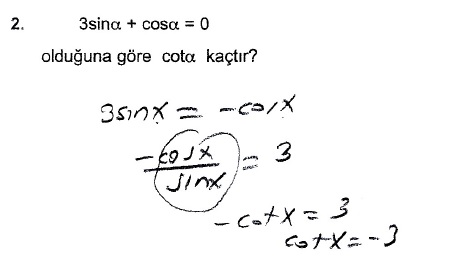 2. 3sinα + cosα = 0
olduğuna göre cotα kaçtır?
3sinx = -cosx
-cosx / sinx = 3
-cotx = 3
cotx = -3